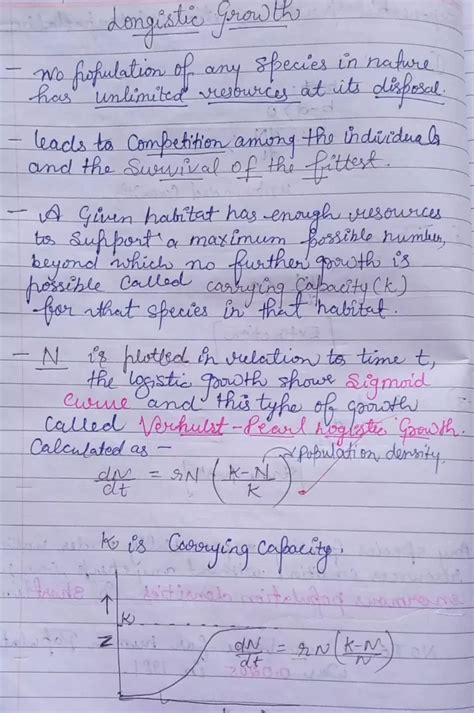 Longistic Growth
- No population of any species in nature
has unlimited resources at its disposal.
- leads to Competition among the individuals
and the Survival of the fittest.
- A Given habitat has enough resources
to Support a maximum possible number,
beyond which no further growth is
possible Called carrying Capacity (K)
for that species in that habitat.
- N is plotted in relation to time t,
the logistic growth shows Sigmoid
Curve and this type of growth
Called Verhulst-Pearl Logistic Growth.
Calculated as -
dN/dt = rN (K-N/K) → Population density
K is Carrying Capacity.
↑
K
N
dN/dt = rN (K-N/N)